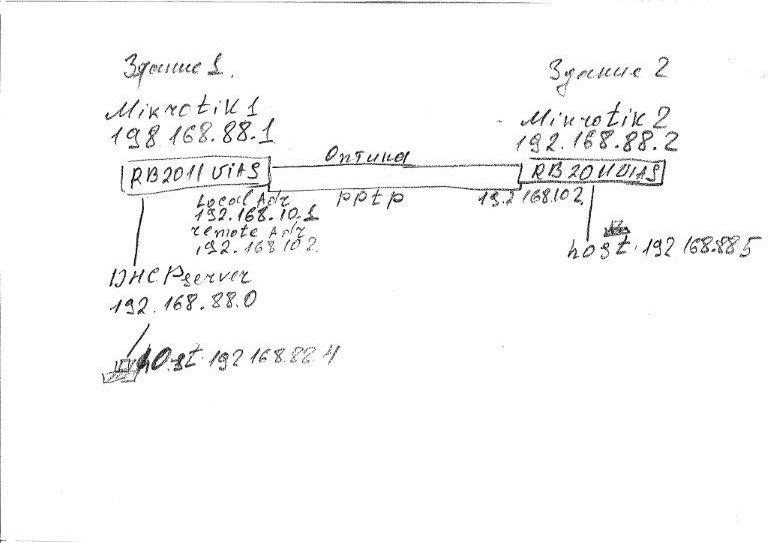 Здание 1.
Mikrotik 1
198.168.88.1
RB2011 UiAS
Local Adr
192.168.10.1
remote Adr
192.168 10 2
DHCPserver
192.168.88.0
host 192 168.88.4
Оптика
pptp
Здание 2
Mikrotik 2
192.168.88.2
RB 2011 UiAS
19.2 168 10 2
host 192 168.88 5